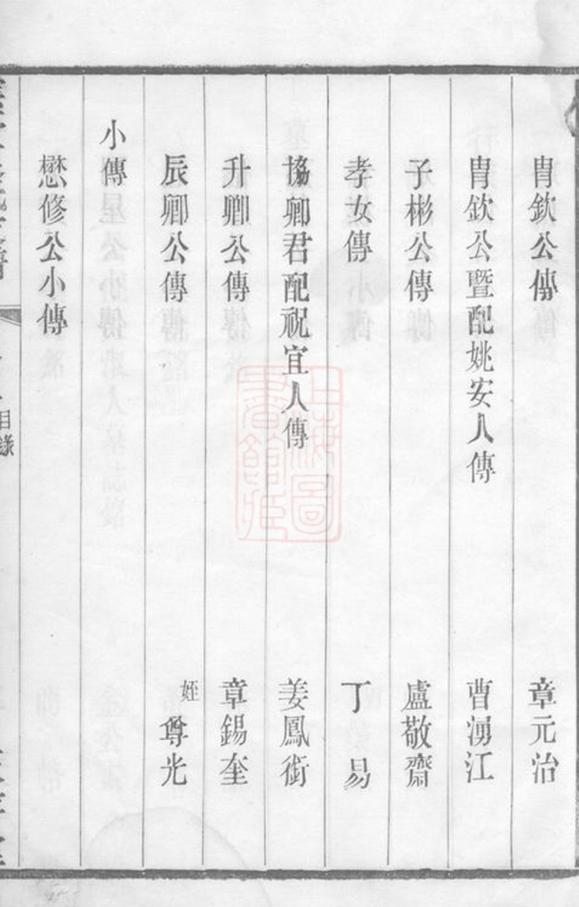 胄欽公傳 章元治
胄欽公暨配姚安人傳 曹湧江
子彬公傳 盧敬齋
孝女傳 丁易
協卿君配祝宜人傳 姜鳳銜
升卿公傳 章錫奎
辰卿公傳 姪尊光
小傳
懋修公小傳
目錄
上海圖書館藏